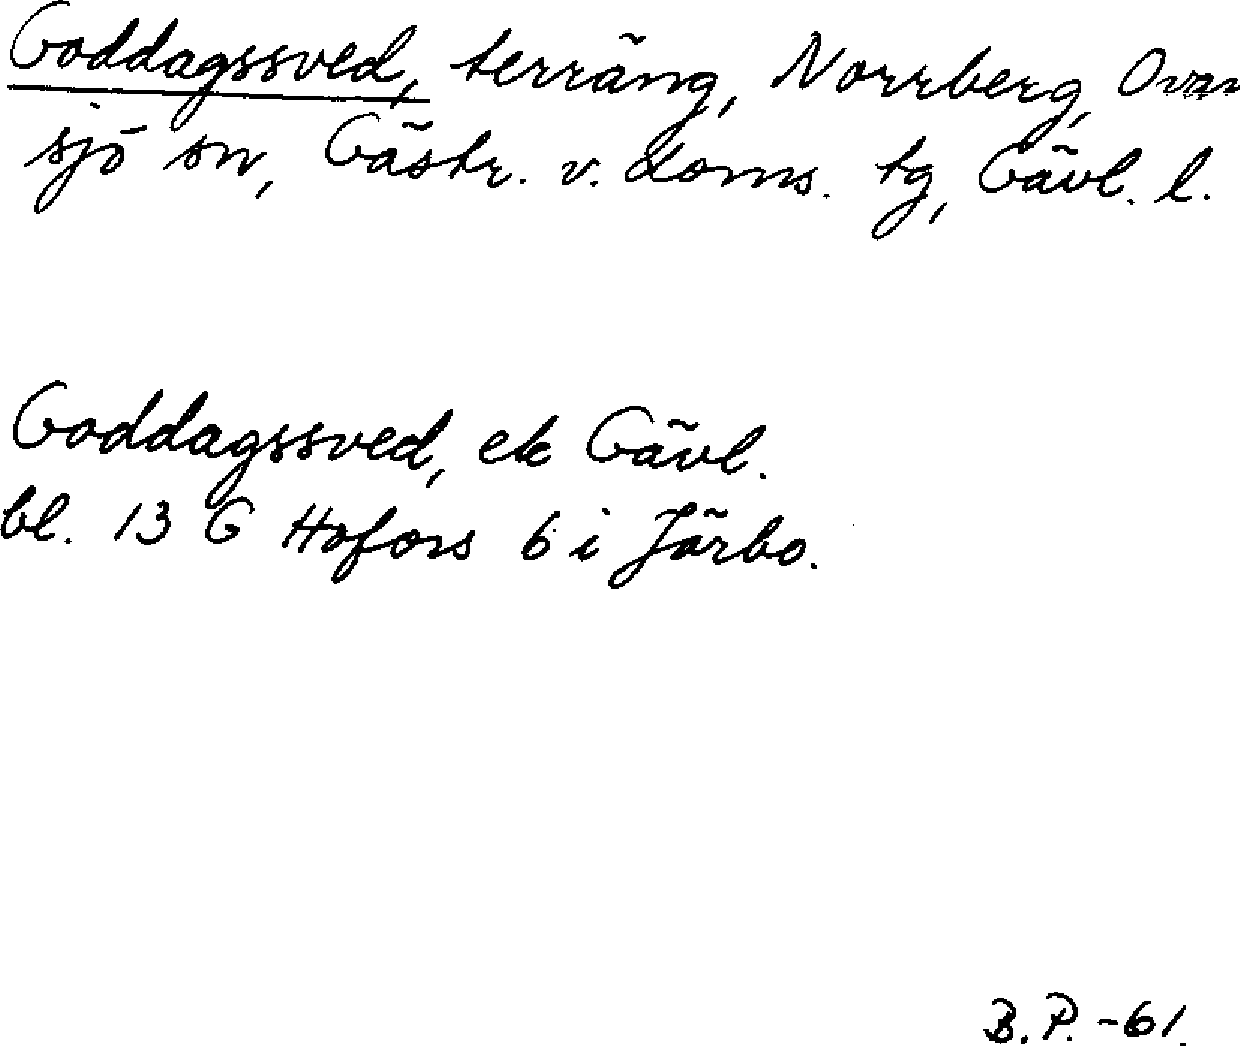 Goddagssved, terräng, Norrberg, Ovan
sjö sn, Gästr. v. doms. tg, Gävl. l.
Goddagssved, ek Gävl.
bl. 13 G Hofors 6 i Järbo.
B.P. -61.